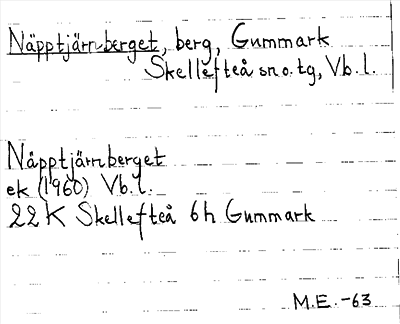 Näpptjärnberget, berg, Gummark
Skellefteå sn o. tg, Vb. l.
Näpptjärnberget
ek (1960) Vb. l.
22 K Skellefteå 6h Gummark
M.E. -63